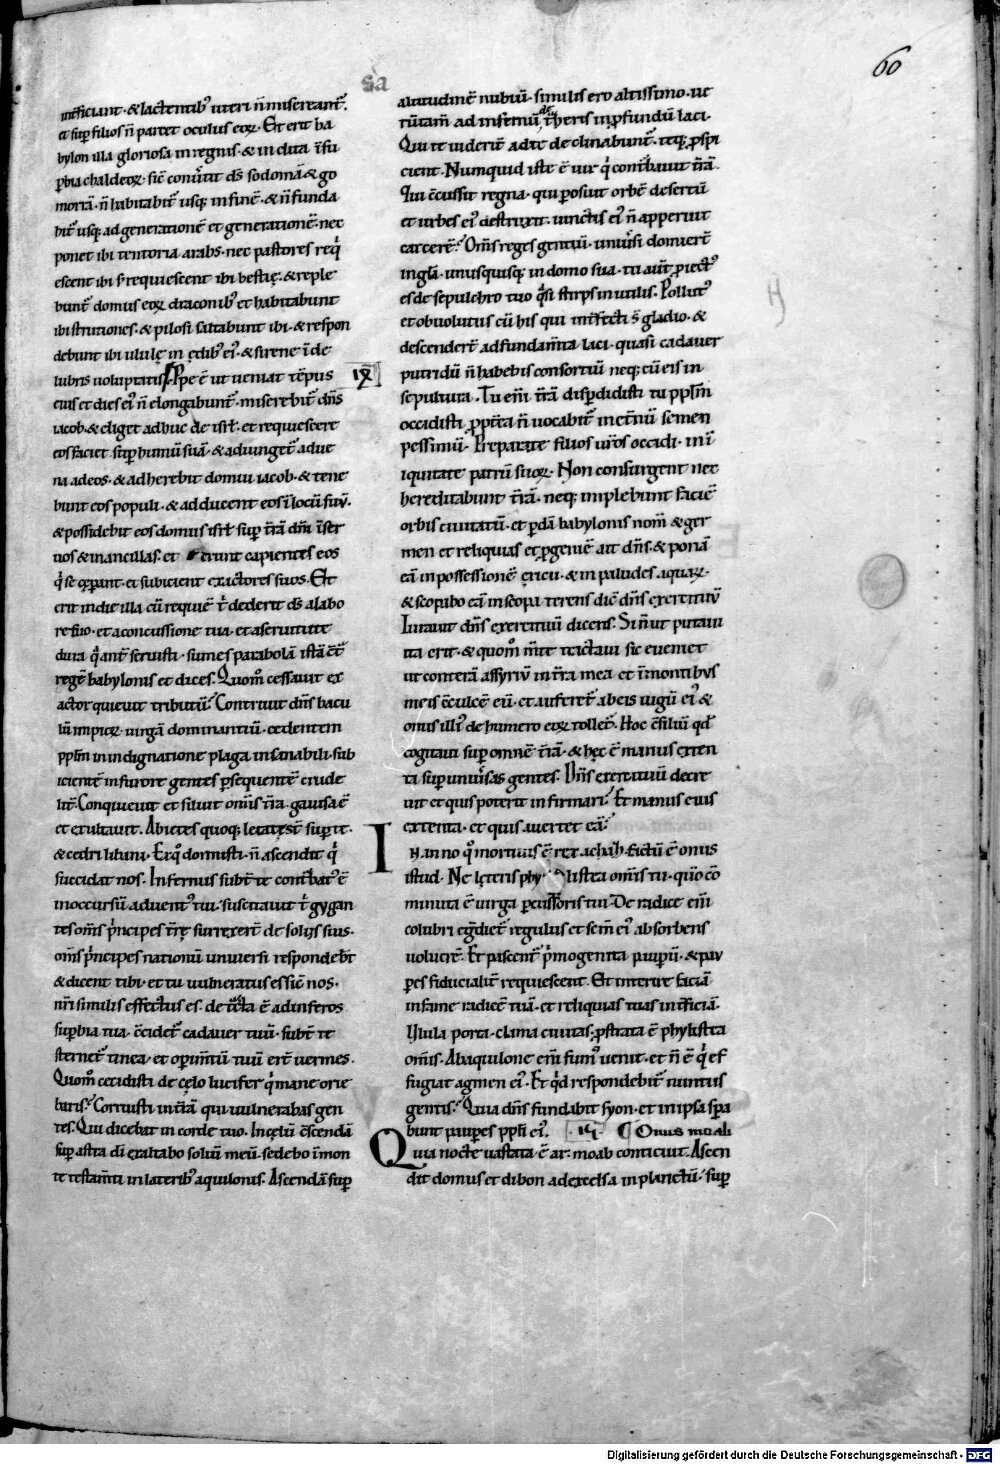 60
sa
int̄ficiant · & lactentib; uteri n̄ misereant̄.
et sup̄ filios n̄ parcet oculus eoꝝ · Et erit ba
bylon illa gloriosa in regnis · & in clita ī su
ꝑbia chaldeoꝝ · sic̄ con uˀtit dn̄s sodomā & go
morrā · n̄ habitabit̄ usq; in finē · & n̄ funda
bit̄ usq; ad generationē et generationē · nec
ponet ibi tentoria arabs · nec pastores req̇
escent ibi sˀ requiescent ibi bestię · & reple
bunt̄ domus eoꝝ draconib; et habitabunt
ibi strutiones · & pilosi saltabunt ibi · & respon
debunt ibi ululę in ędib; eiˀ · & sirene ī de
lubris uoluptatis Ppe ē ut ueniat tēpus IX
eius et dies eiˀ n̄ elongabunt̄ · miserebit̄ dn̄s
iacob · & eliget adhuc de isrł · et requiescere
eos faciet sup̄ humū suā · & adiunget̄ adue
na ad eos · & adherebit domui iacob · & tene
bunt eos populi · & adducent eos ī locū suū ·
& possidebit eos domus isrł sup̄ t̄rā dn̄i ī ser
uos & in ancillas · et erunt capientes eos
q̇ se cęperant · et subicient exactores suos · Et
erit in die illa cū requiē t̄ dederit dˀs a labo
re tuo · et a concussione tua · et a seruitute
dura q̇ ant̄ seruisti · sumes parabolā istā cˀtˀ
regē babylonis et dices · Quom̊ cessauit ex
actor quieuit tributū? Contriuit dn̄s bacu
lū impioꝝ · uirgā dominantiū · cedentem
pplm̄ in indignatione plaga insanabili · sub
icientē in furore gentes ꝑsequentē crude
lit̄ · Conquieuit et siluit omīs t̄rā · gauisa ē
et exultauit · Abietes quoq; letatę st̄ sup̄ te ·
& cedri libani · Ex q̊ dormisti · n̄ ascendit q̇
succidat nos · Infernus subt̄ te cont̄bat; ē
in occursū aduent; tui · suscitauit t̄ gygan
tes omīs ṗncipes t̄rę surrexert̄ de solijs suis ·
omīs ṗncipes nationū uniuersi respondebt̄
& dicent tibi · et tu uulneratus es sic̄ nos ·
nr̄i similis effectus es · detcta ē ad inferos
sup̄bia tua · c̄cidet̄ cadauer tuū · subt̄ te
sternet̄ tinea · et operim̄tū tuū ert̄ uermes ·
Quom̊ cecidisti de cęlo lucifer q̇ mane orie
baris? Corruisti in t̄rā qui uulnerabas gen
tes · Qui dicebas in corde tuo · In cęlū c̄scendā
sup̄ astra dī exaltabo soliū meū · sedebo ī mon
te testam̄ti in laterib; aquilonis · Ascendā sup̄
altitudinē nubiū · similis ero altissimo · Ve
rūtam̄ ad infernū de t̄heris in ꝓfundū laci ·
Qui te uiderint̄ ad te declinabunt̄ · teq; ꝓspi
cient · Numquid iste ē uir q̇ cont̄bauit t̄rā ·
Qui c̄cussit regna · qui posuit orbē desertū
et urbes eiˀ destruxit · uinctis eiˀ n̄ apperuit
carcerē? Omīs reges gentiū · uniuˀsi domiert̄
in glā · unusquisq; in domo sua · tu aut̄ ꝓiect;
es de sepulchro tuo q̇si stirps inutilis · Pollut;
et obuolutus cū his qui int̄fecti s̄ gladio · &
descendert̄ ad fundam̄ta laci · quasi cadauer
putridū n̄ habebis consortiū neq; cū eis in
sepultura · Tu eni̅ t̄rā disꝑdidisti tu pplm̄
occidisti ꝓpt̄ea n̄ uocabit̄ in et̄nū semen
pessimū · Preparate filios uīos occidi · in ī
iquitate patrū suoꝝ · Non consurgent nec
hereditabunt t̄rā · neq; implebunt faciē
orbis ciuitatū · et ꝑdā babylonis nom̄ & ger
men et reliquias et ꝓgeniē ait dn̄s · & ponā
eā in possessionē ericii · & in paludes aquaꝝ ·
& scopabo eā in scopa terens dic̄ dn̄s exercituū
Iurauit dn̄s exercituū dicens · Si n̄ ut putaui
ita erit · & quom̊ m̄te tractaui sic eueniet
ut conterā assyriū in t̄ra mea et ī montibus
meis c̄culcē eū · et auferet̄ ab eis iugū eiˀ &
onus illiˀ de humero eoꝝ tollet̄ · Hoc c̄siliū qd̄
cogitaui sup̄ omnē t̄rā · & hęc ē manus exten
ta sup̄ uniuˀsas gentes · Dn̄s exercituū decre
uit et quis poterit infirmare? Et manus eius
extenta · et quis auertet eā?
In anno q̊ mortuus ē rex achaz · factū ē onus
istud · Ne lęteris phylistea omīs tu · quō cō
minuta ē uirga percussoris tui · De radice eni̅
colubri eg̊diet̄ regulus et sem̄ eiˀ absorbens
uolucrē · Et pascent̄ ṗmogenita pauperū · & pau
ꝑes fiducialit̄ requiescent · Et interire faciā
in fame radicē tuā · et reliquias tuas int̄ficiā ·
Ulula porta · clama ciuitas · ꝓstrata ē phylistea
omīs · Ab aquilone eni̅ fum; uenit · et n̄ ē q̇ ef
fugiat agmen eiˀ · Et qd̄ respondebit̄ nuntiis
gentis? Quia dn̄s fundabit syon · et in ipsa spa
bunt pauꝑes ppłi eiˀ. Onus moab
Quia nocte uastata ē ar · moab conticuit · Ascen
dit domus et dibon ad excelsa in planctū · sup̄
Digitalisierung gefördert durch die Deutsche Forschungsgemeinschaft - DFG